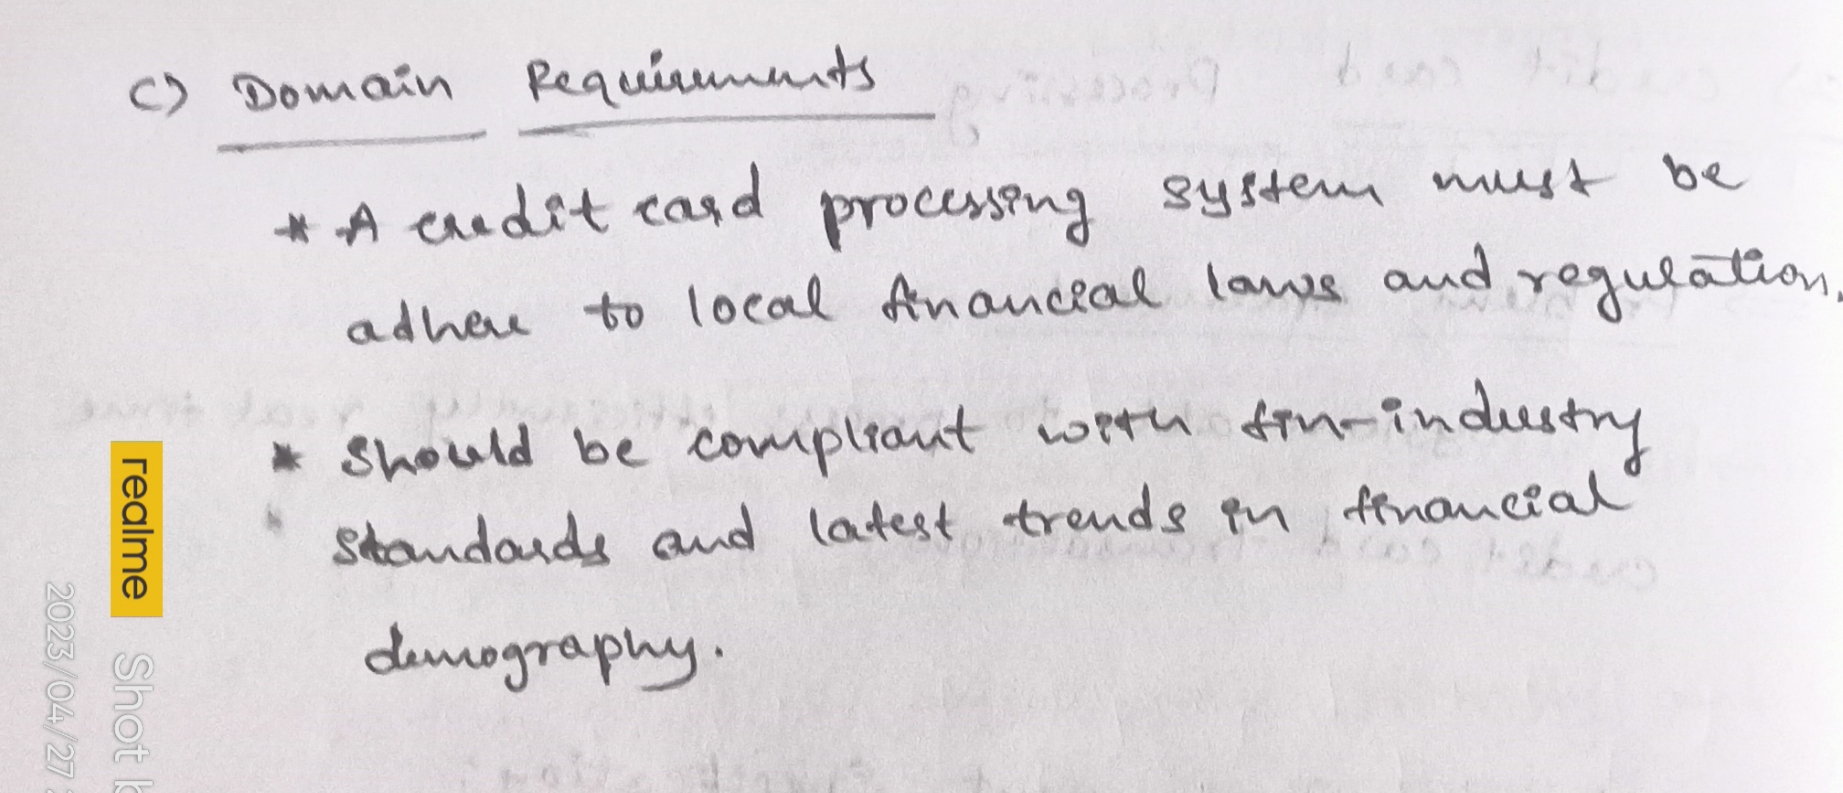 c) Domain Requirements
* A credit card processing system must be
adhere to local financial laws and regulation.
* Should be compliant with fin-industry
standards and latest trends in financial
demography.
realme Shot b
2023/04/27